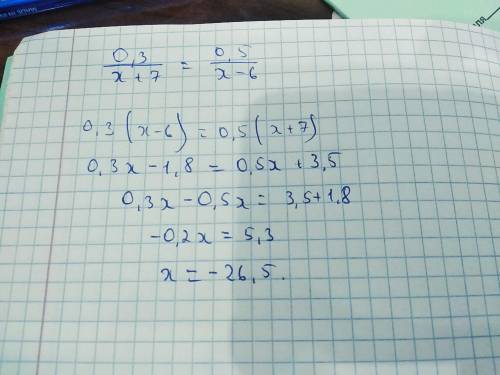 0,3/(x+7) = 0,5/(x-6)
0,3(x-6) = 0,5(x+7)
0,3x - 1,8 = 0,5x + 3,5
0,3x - 0,5x = 3,5+1,8
-0,2x = 5,3
x = -26,5.